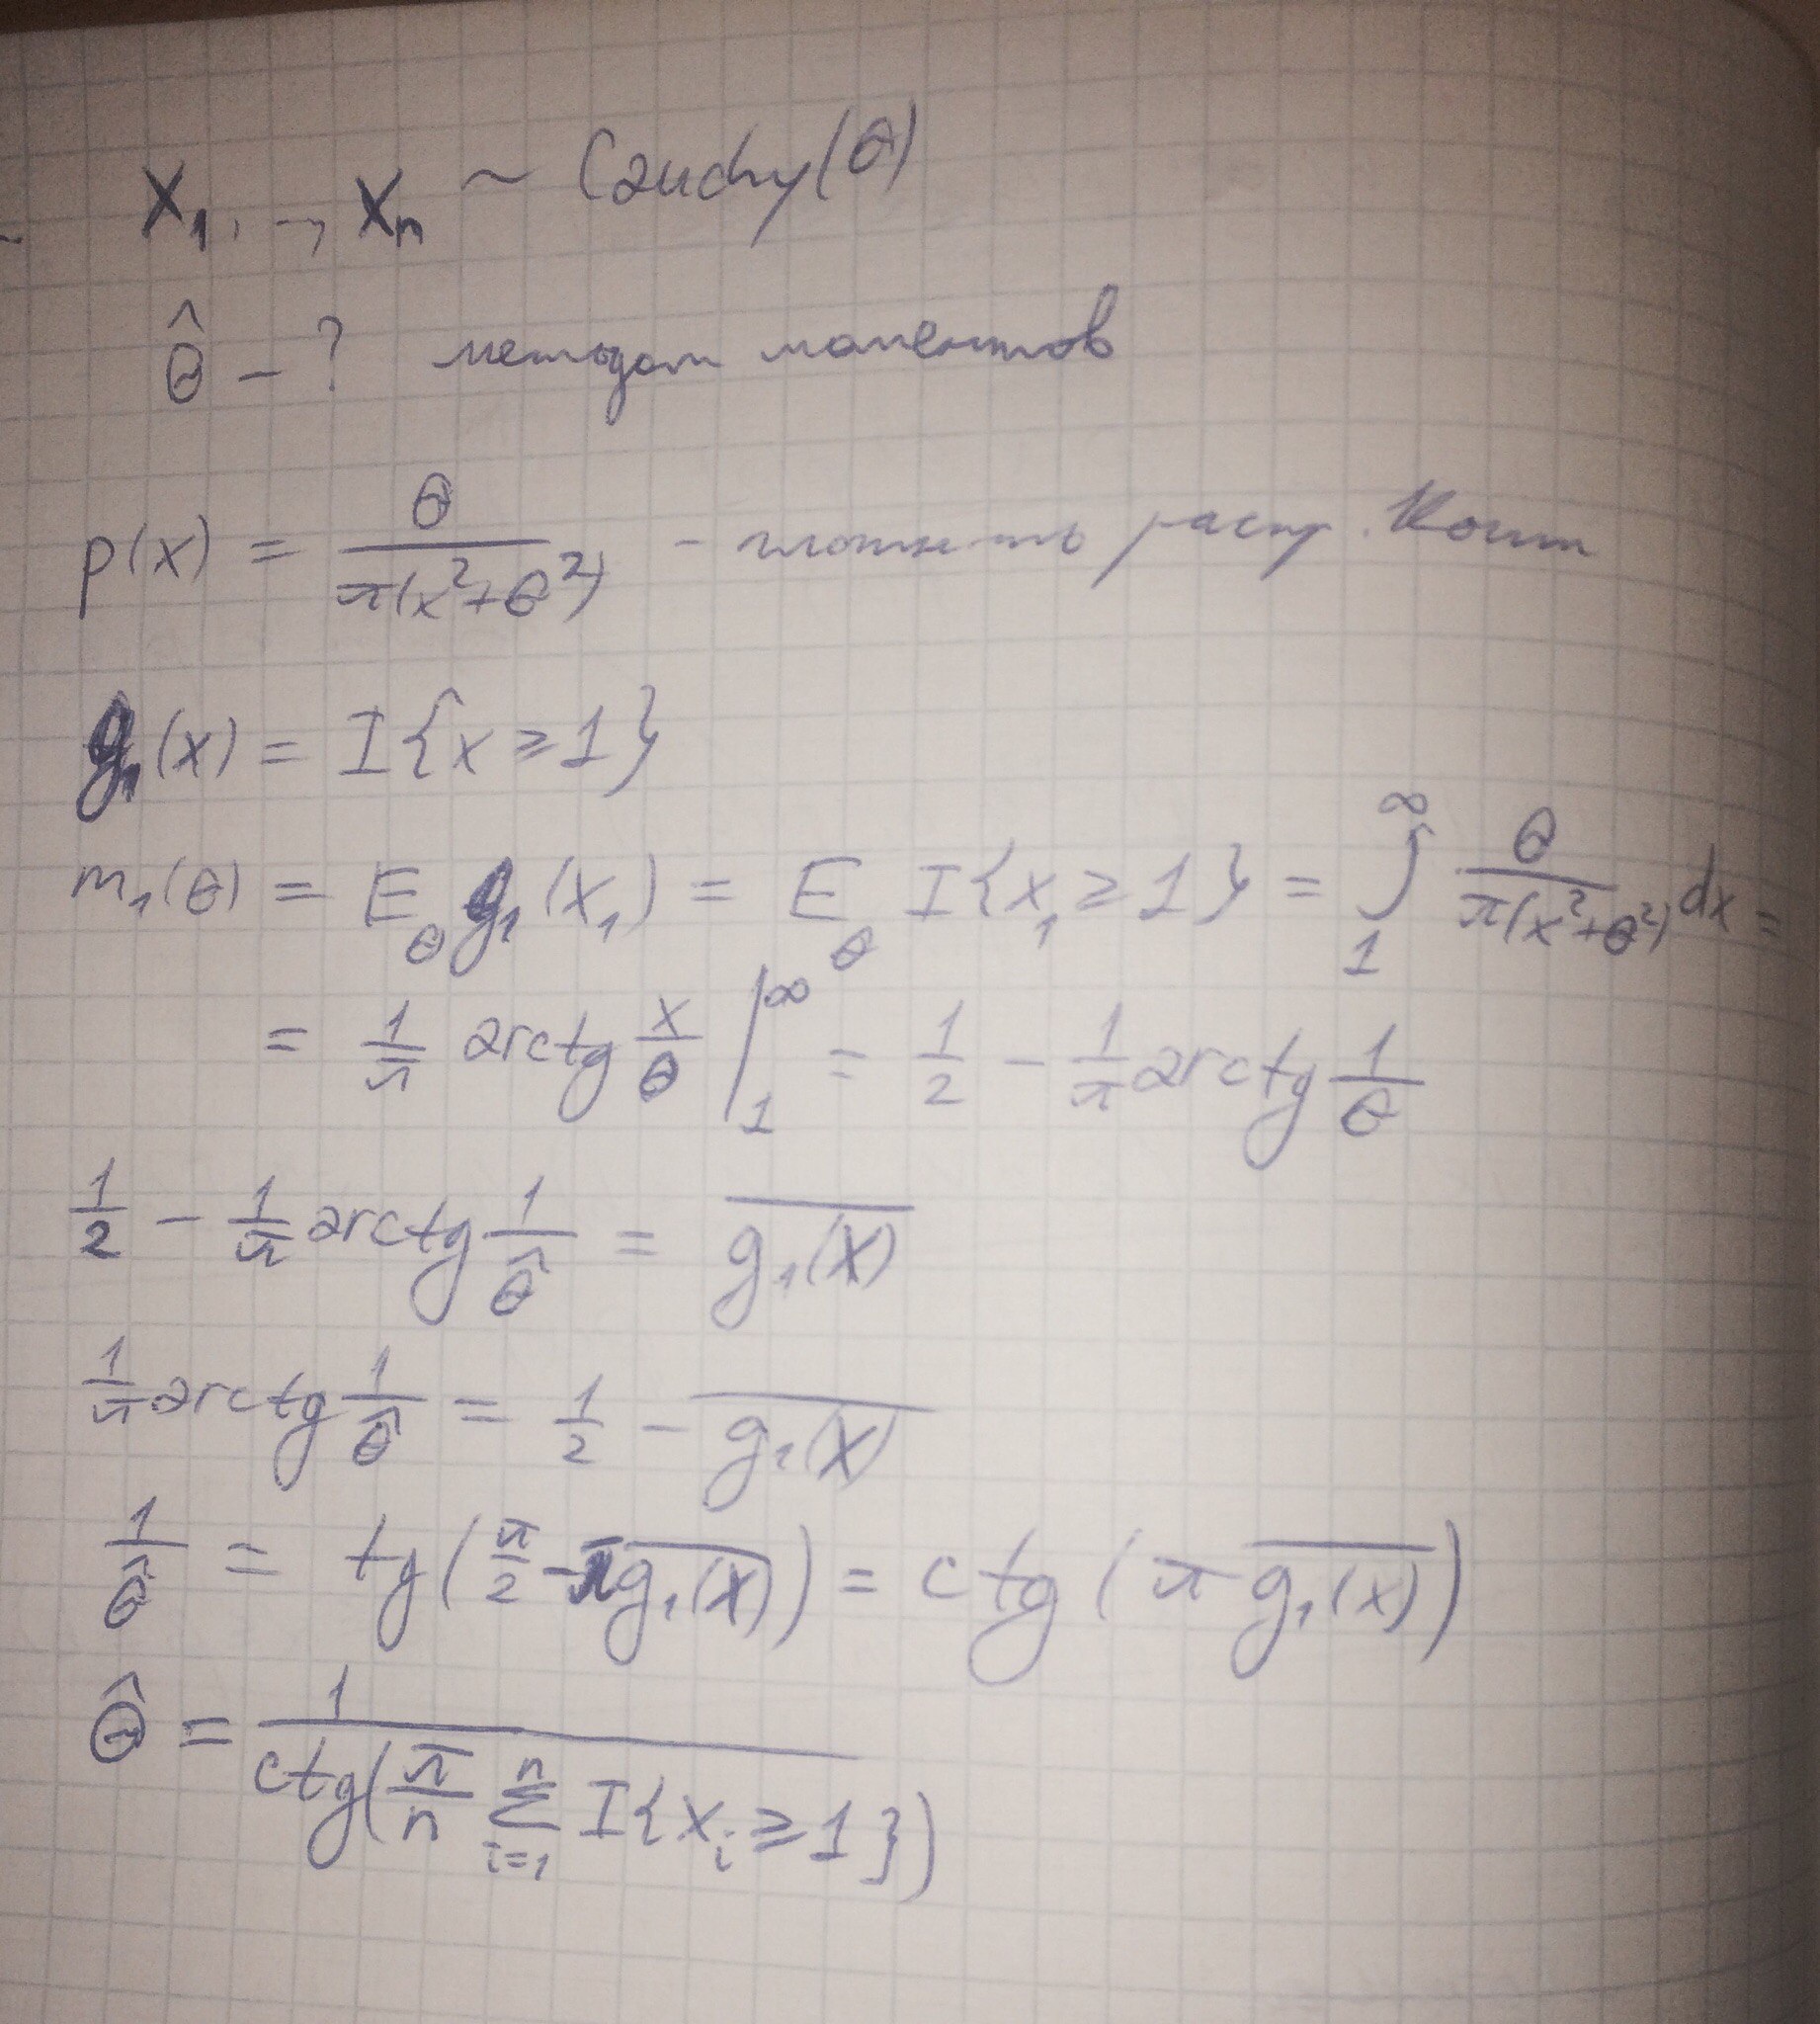 X₁, .., Xₙ ~ Cauchy(θ)
θ̂ – ? методом моментов
p(x) = θ / π(x²+θ²) – плотность распр. Коши
g₁(x) = I{x ≥ 1}
m₁(θ) = E_θ g₁(X₁) = E_θ I{X₁ ≥ 1} = ∫₁^∞ θ / π(x²+θ²) dx =
= 1/π arctg x/θ |₁^∞ = 1/2 – 1/π arctg 1/θ
1/2 – 1/π arctg 1/θ̂ = \overline{g₁(X)}
1/π arctg 1/θ̂ = 1/2 – \overline{g₁(X)}
1/θ̂ = tg(π/2 – π\overline{g₁(X)}) = ctg(π \overline{g₁(X)})
θ̂ = 1 / ctg(π/n Σ_{i=1}^n I{X_i ≥ 1})